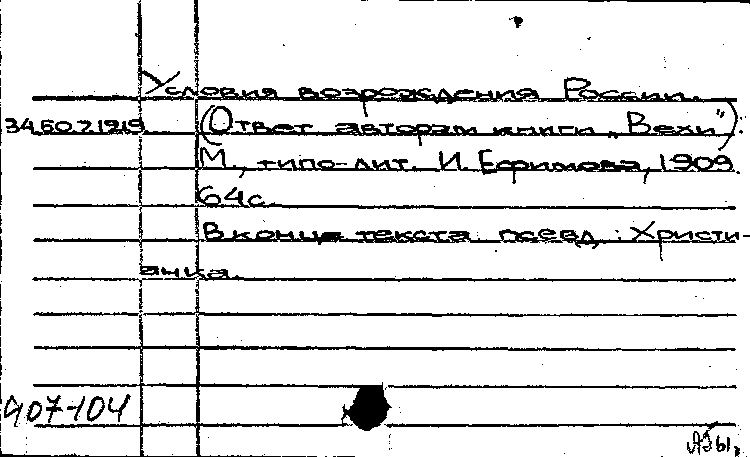 Условия возрождения России.
34.60.7.1919 (Ответ авторам книги „Вехи").
М., типо-лит. И. Ефимова, 1909.
64с.
В конце текста псевд.: Христи-
анка.
А07-104